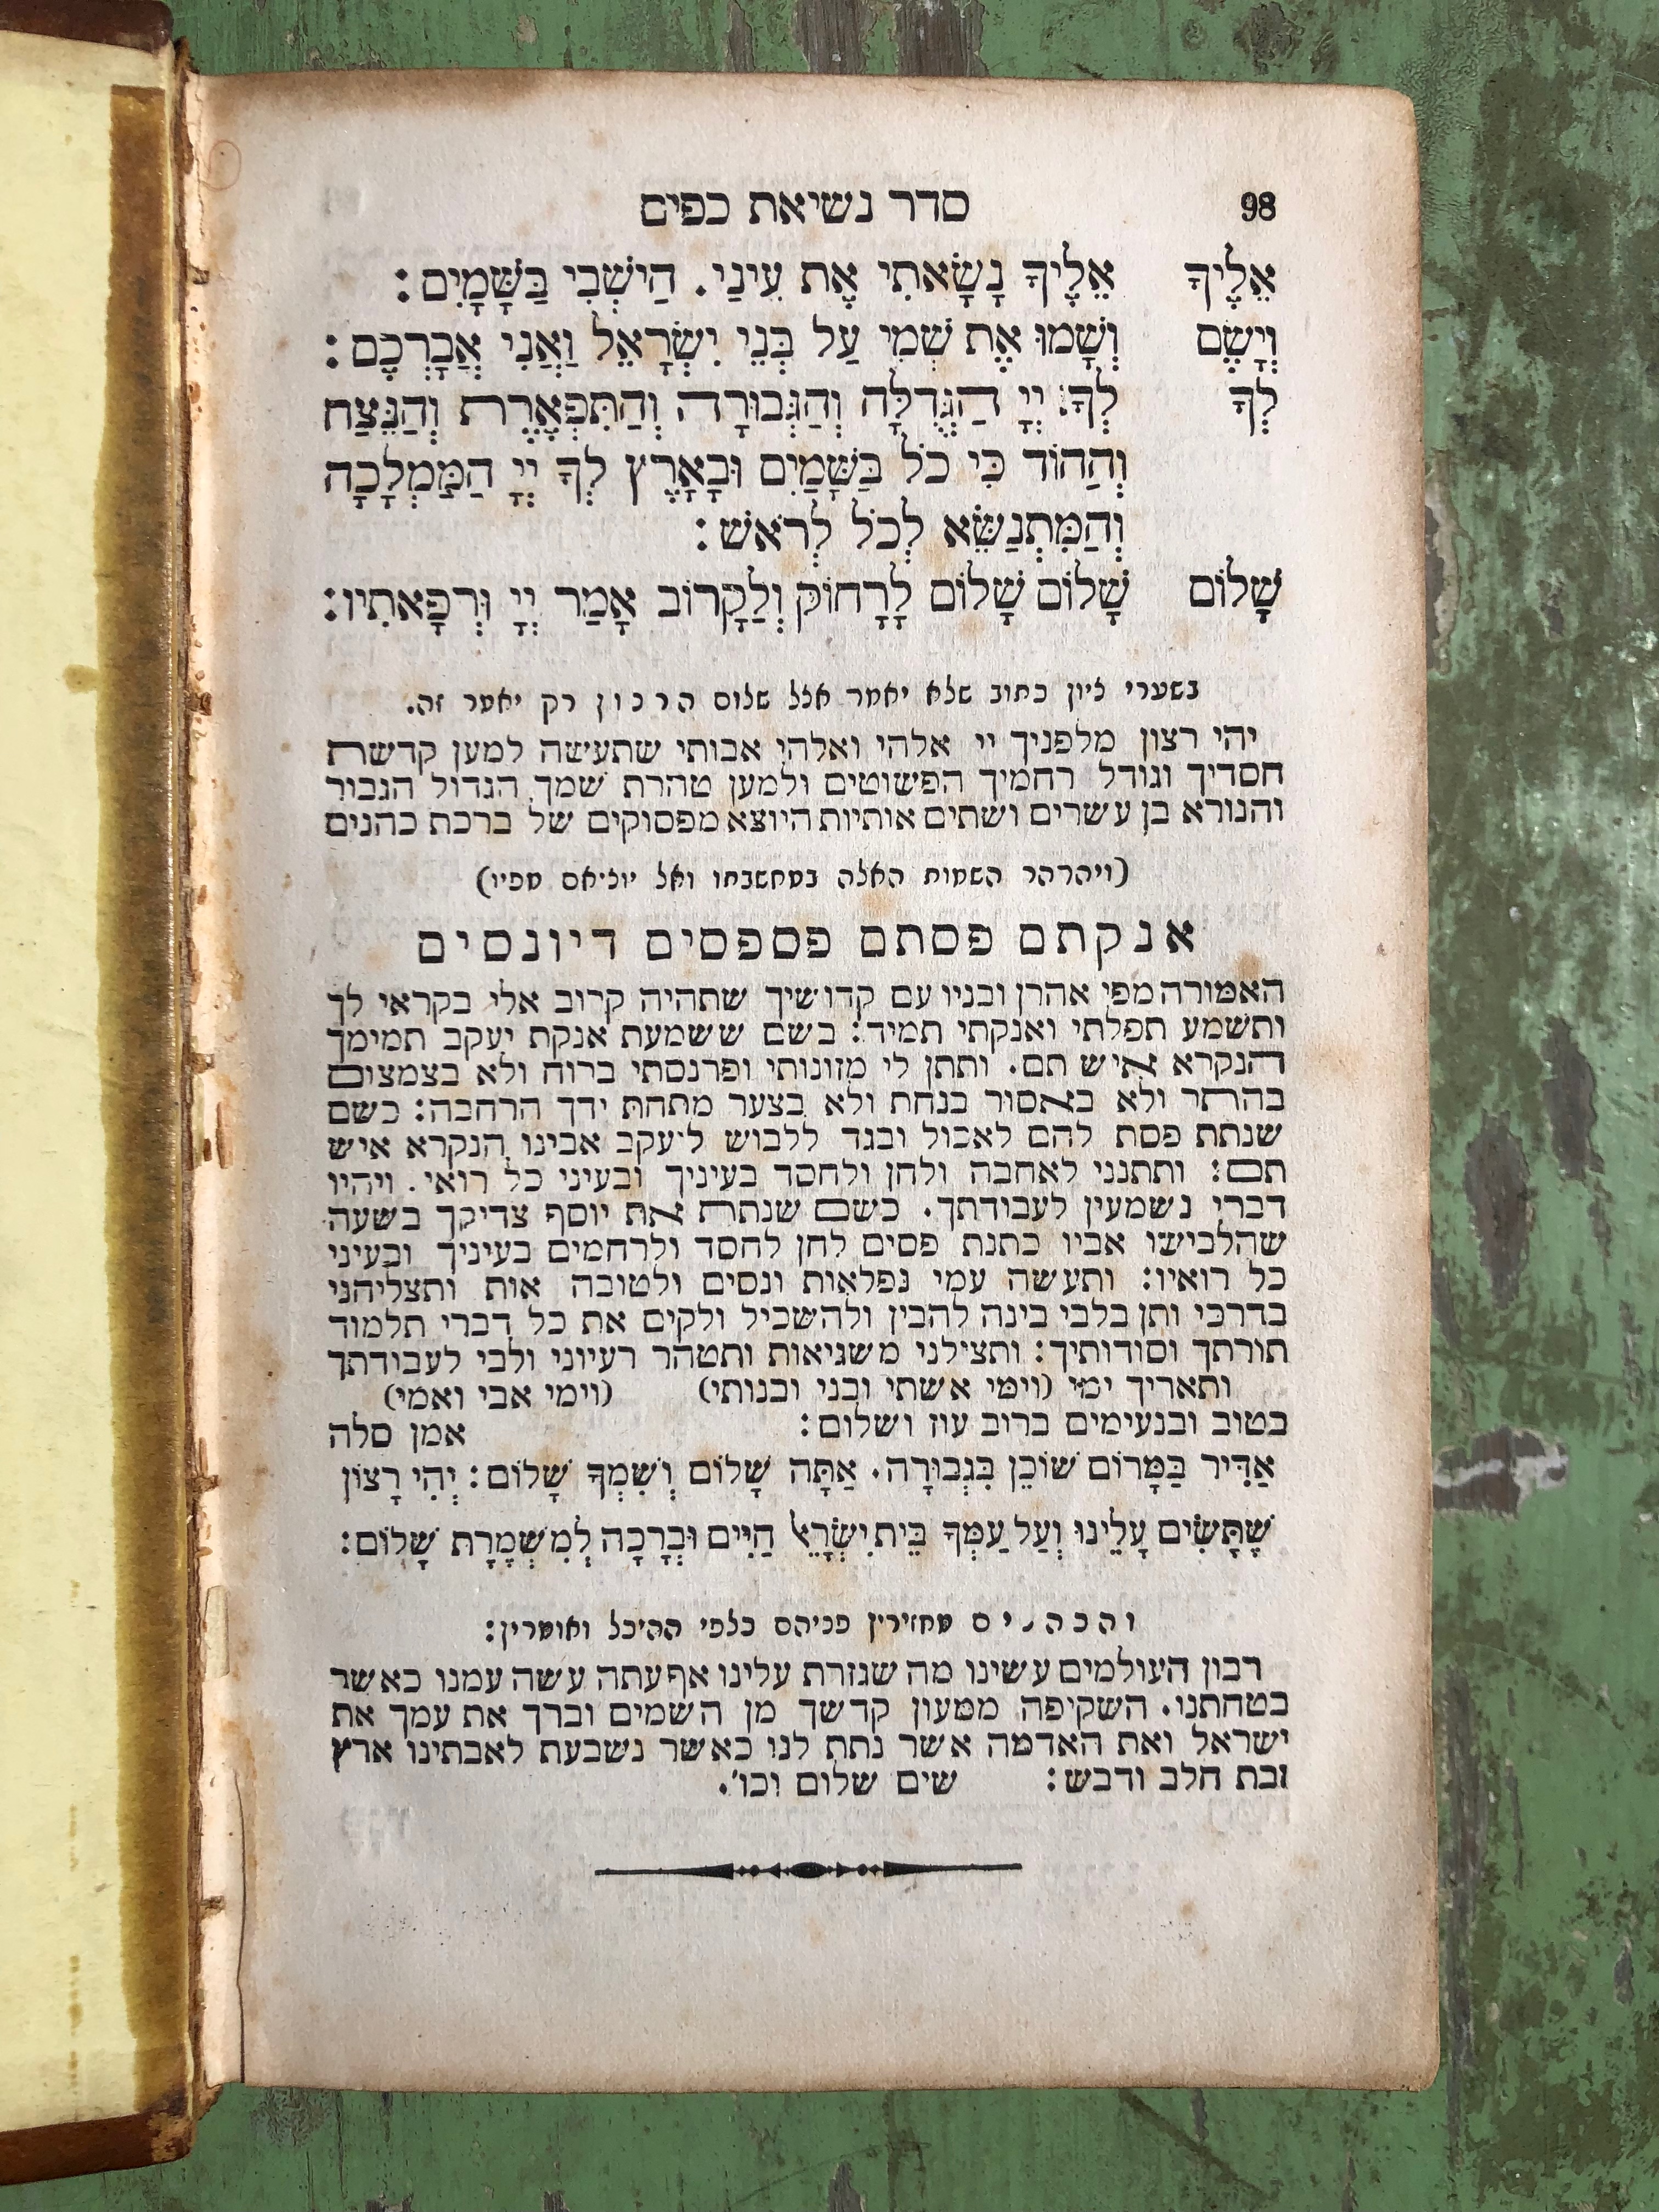 98 סדר נשיאת כפים
אֵלֶיךָ אֵלֶיךָ נָשָׂאתִי אֶת עֵינַי. הַיֹּשְׁבִי בַּשָּׁמָיִם:
וְיָשֵׂם וְשָׂמוּ אֶת שְׁמִי עַל בְּנֵי יִשְׂרָאֵל וַאֲנִי אֲבָרְכֵם:
לְךָ לְךָ יְיָ הַגְּדֻלָּה וְהַגְּבוּרָה וְהַתִּפְאֶרֶת וְהַנֵּצַח
וְהַהוֹד כִּי כֹל בַּשָּׁמַיִם וּבָאָרֶץ לְךָ יְיָ הַמַּמְלָכָה
וְהַמִּתְנַשֵּׂא לְכֹל לְרֹאשׁ:
שָׁלוֹם שָׁלוֹם שָׁלוֹם לָרָחוֹק וְלַקָרוֹב אָמַר יְיָ וּרְפָאתִיו:
בשערי ציון כתוב שלא יאמר אצל שלום הרבון רק יאמר זה.
יהי רצון מלפניך יי אלהי ואלהי אבותי שתעשה למען קדשת
חסדיך וגודל רחמיך הפשוטים ולמען טהרת שמך הגדול הגבור
והנורא בן עשרים ושתים אותיות היוצא מפסוקים של ברכת כהנים
(ויהרהר השמות האלה במחשבתו ואל יוציאם מפיו)
אנקתם פסתם פספסים דיונסים
האמורה מפי אהרן ובניו עם קדושיך שתהיה קרוב אלי בקראי לך
ותשמע תפלתי ואנקתי תמיד: בשם ששמעת אנקת יעקב תמימך
הנקרא איש תם. ותתן לי מזונותי ופרנסתי ברוח ולא בצמצום
בהתר ולא באסור בנחת ולא בצער מתחת ידך הרחבה: כשם
שנתת פסת להם לאכול ובגד ללבוש ליעקב אבינו הנקרא איש
תם: ותתנני לאחבה ולחן ולחסד בעיניך ובעיני כל רואי. ויהיו
דברי נשמעין לעבודתך. כשם שנתת את יוסף צדיקך בשעה
שהלבישו אביו כתנת פסים לחן לחסד ולרחמים בעיניך ובעיני
כל רואיו: ותעשה עמי נפלאות ונסים ולטובה אות ותצליחני
בדרכי ותן בלבי בינה להבין ולהשכיל ולקים את כל דברי תלמוד
תורתך וסודותיך: ותצילני משגיאות ותטהר רעיוני ולבי לעבודתך
ותאריך ימי (וימי אשתי ובני ובנותי) (וימי אבי ואמי)
בטוב ובנעימים ברוב עוז ושלום: אמן סלה
אַדִּיר בַּמָּרוֹם שׁוֹכֵן בִּגְבוּרָה. אַתָּה שָׁלוֹם וְשִׁמְךָ שָׁלוֹם: יְהִי רָצוֹן
שֶׁתָּשִׂים עָלֵינוּ וְעַל עַמְּךָ בֵּית יִשְׂרָאֵל חַיִּים וּבְרָכָה לְמִשְׁמֶרֶת שָׁלוֹם:
והכהנים מחזירין פניהם כלפי ההיכל ואומרין:
רבון העולמים עשינו מה שגזרת עלינו אף עתה עשה עמנו כאשר
בטחתנו. השקיפה ממעון קדשך מן השמים וברך את עמך את
ישראל ואת האדמה אשר נתת לנו כאשר נשבעת לאבתינו ארץ
זבת חלב ודבש: שים שלום וכו'.